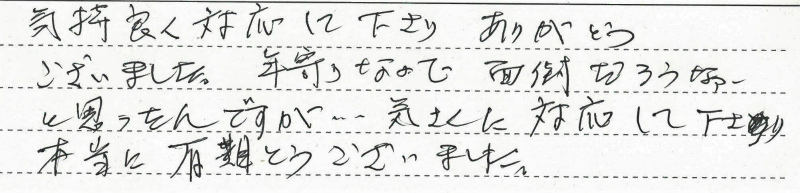 気持良く対応して下さり ありがとう
ございました。年寄りなので 面倒だろうなー
と思ったんですが… 気さくに 対応して下さり
本当に 有難とうございました。